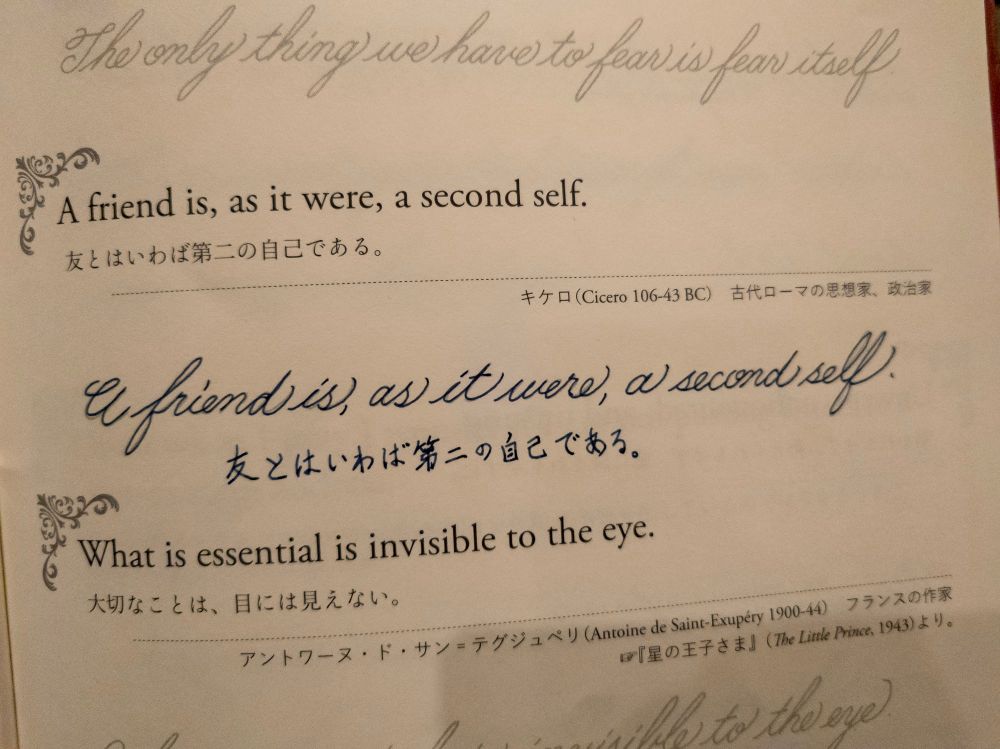 The only thing we have to fear is fear itself
A friend is, as it were, a second self.
友とはいわば第二の自己である。
キケロ(Cicero 106-43 BC) 古代ローマの思想家、政治家
A friend is, as it were, a second self.
友とはいわば第二の自己である。
What is essential is invisible to the eye.
大切なことは、目には見えない。
アントワーヌ・ド・サン=テグジュペリ(Antoine de Saint-Exupéry 1900-44) フランスの作家
☞『星の王子さま』(The Little Prince, 1943)より。
invisible to the eye